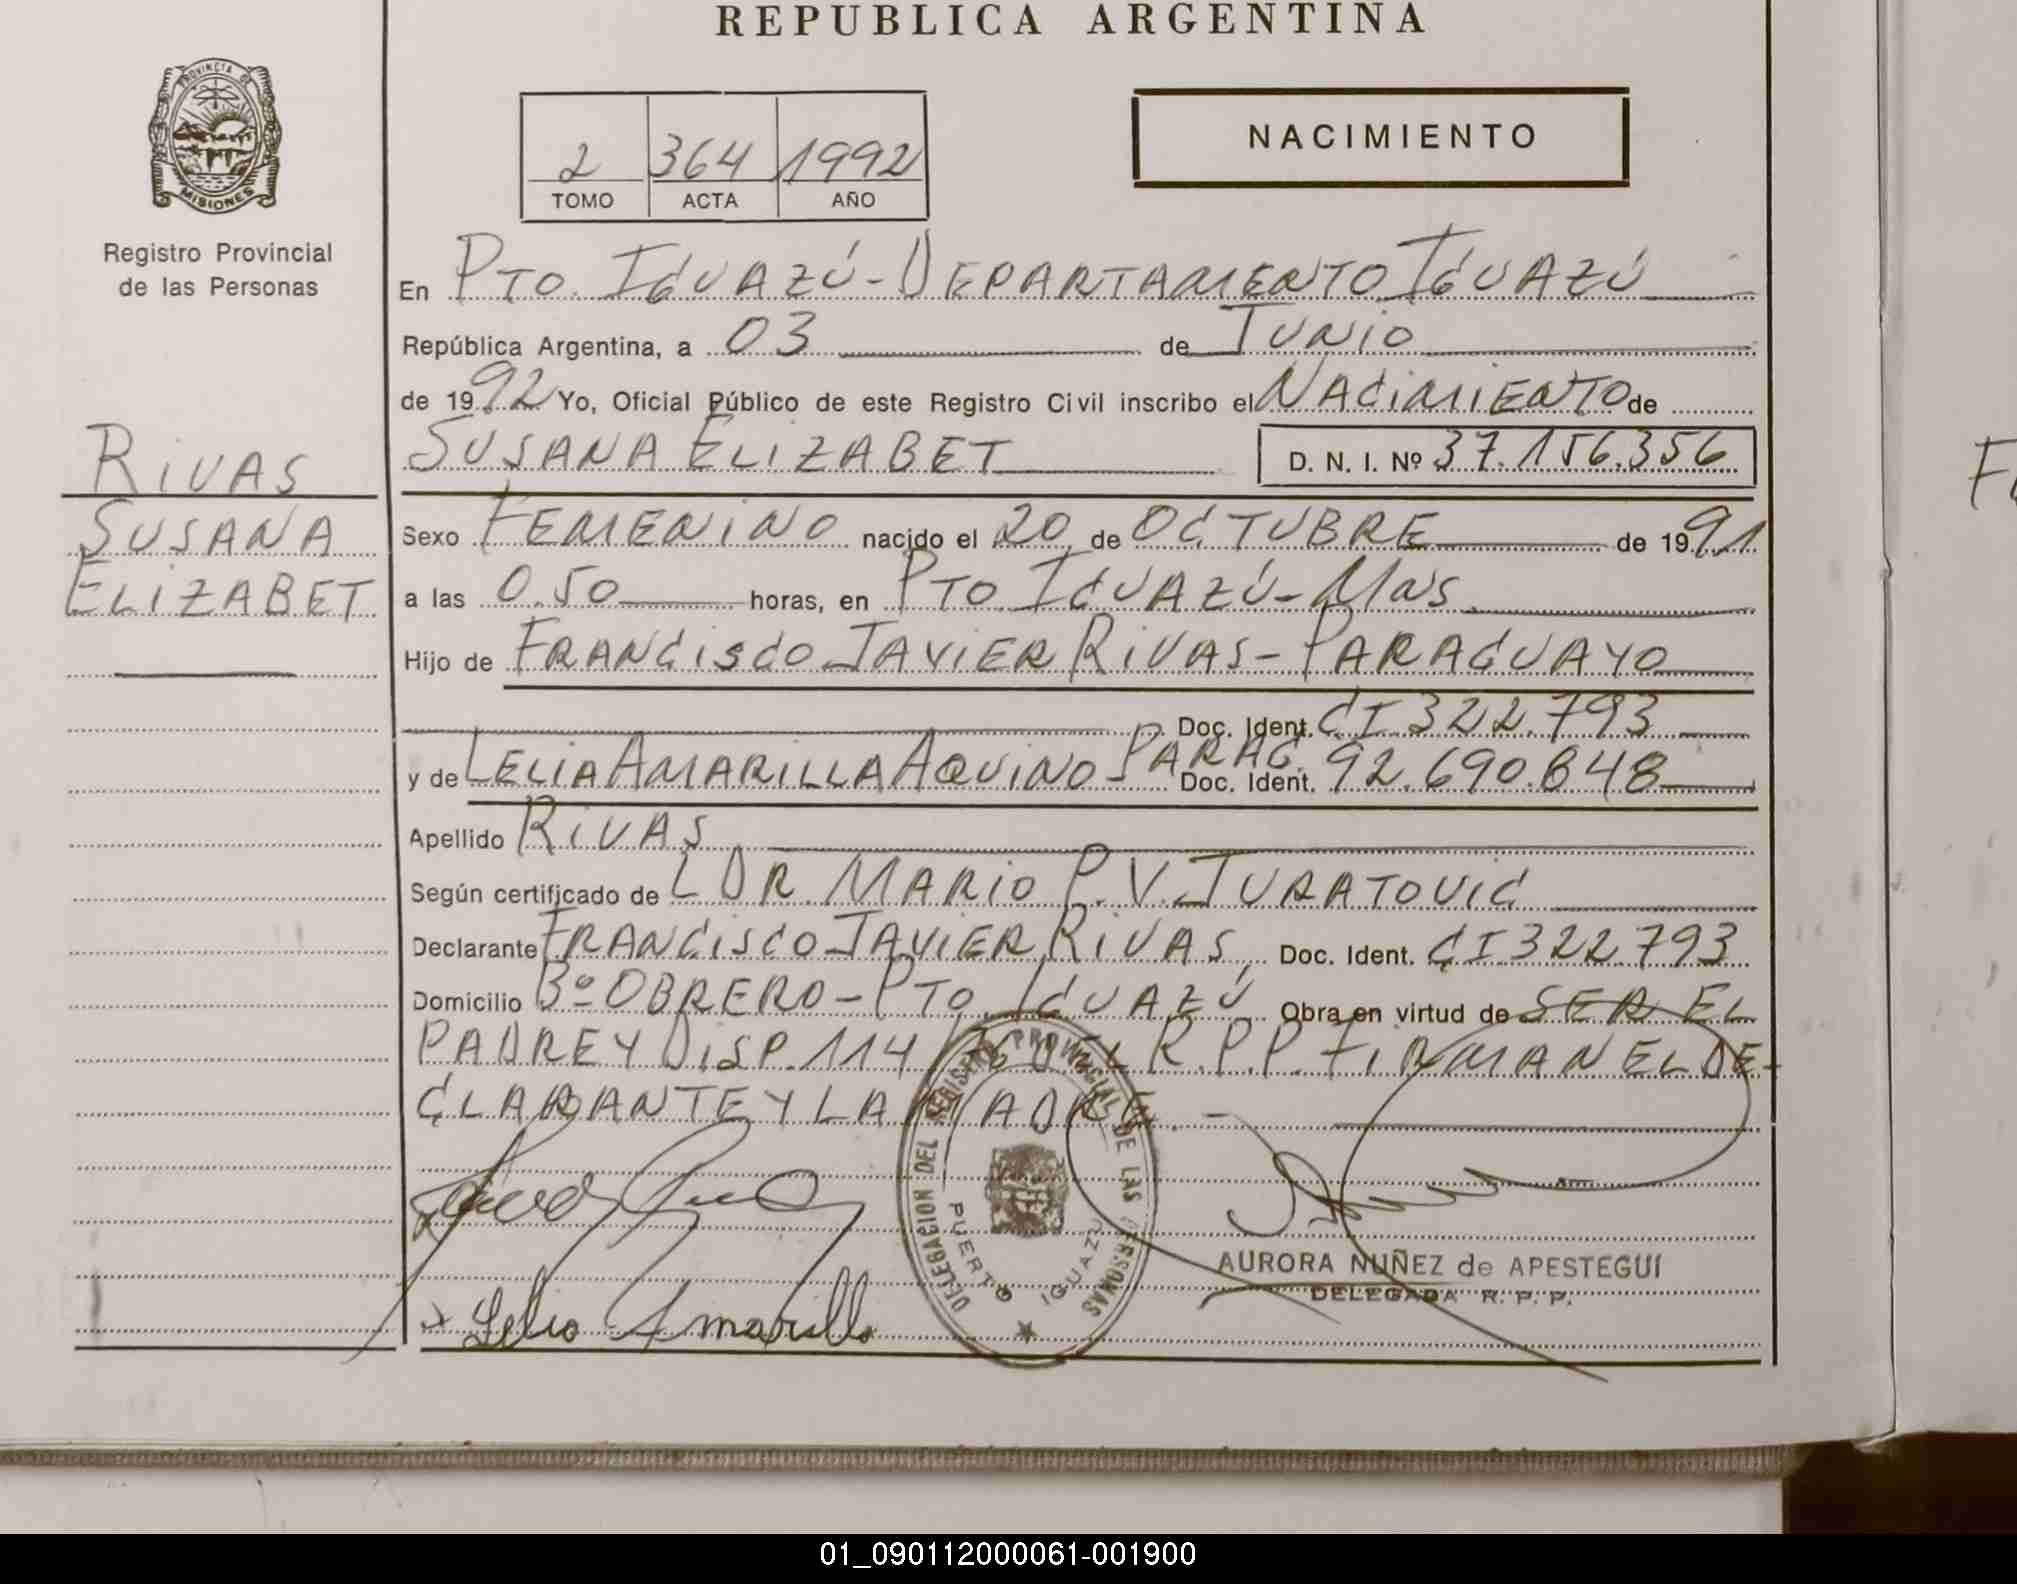 REPUBLICA ARGENTINA
PROVINCIA DE
MISIONES
Registro Provincial
de las Personas
2 364 1992
TOMO ACTA AÑO
NACIMIENTO
En PTO. IGUAZÚ - DEPARTAMENTO IGUAZÚ
República Argentina, a 03 de JUNIO
de 1992 Yo, Oficial Público de este Registro Civil inscribo el NACIMIENTO de
SUSANA ELIZABET D. N. I. Nº 37.156.356
RIVAS
SUSANA
ELIZABET
Sexo FEMENINO nacido el 20 de OCTUBRE de 1991
a las 0.50 horas, en PTO IGUAZÚ - MNS
Hijo de FRANCISCO JAVIER RIVAS - PARAGUAYO
Doc. Ident. CI 322.793
y de LELIA AMARILLA AQUINO PARAG. Doc. Ident. 92.690.848
Apellido RIVAS
Según certificado de L DR. MARIO P. V. JURATOVIC
Declarante FRANCISCO JAVIER RIVAS, Doc. Ident. CI 322.793
Domicilio Bº OBRERO - PTO IGUAZÚ Obra en virtud de SER EL
PADRE Y DISP. 114 R.P.P. FIRMAN EL DE-
CLARANTE Y LA MADRE. -
DELEGACION DEL REGISTRO PROVINCIAL DE LAS PERSONAS
PUERTO IGUAZU
AURORA NUÑEZ de APESTEGUI
DELEGADA R. P. P.
Lelia Amarilla
01_090112000061-001900